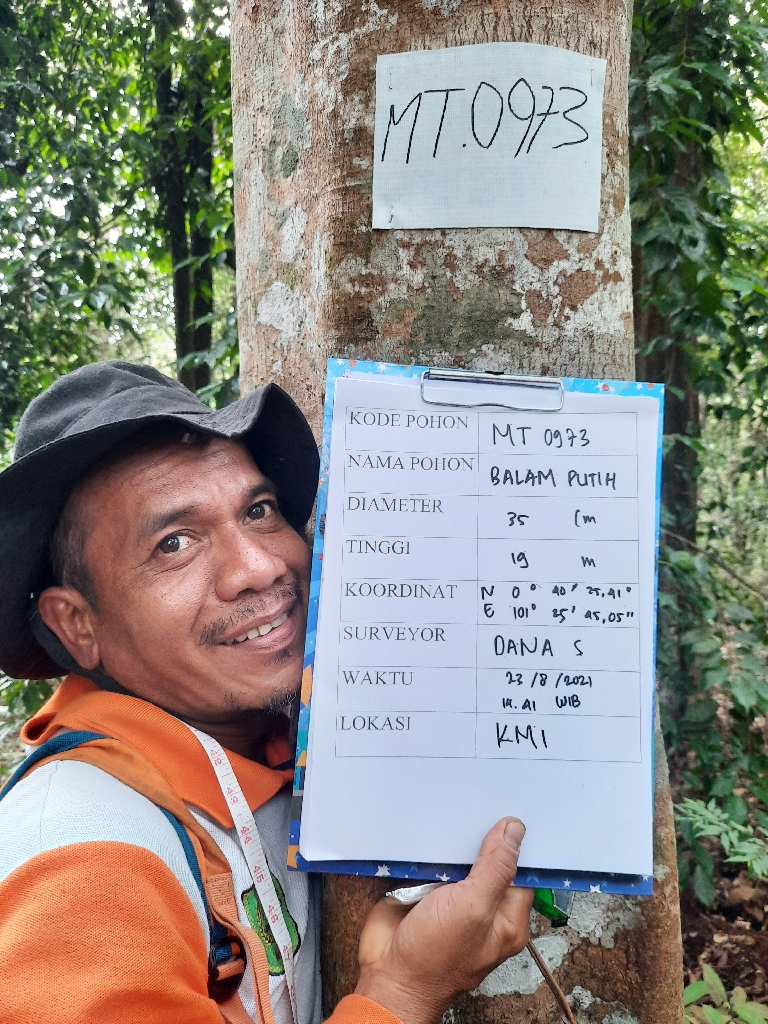 MT.0973
KODE POHON MT 0973
NAMA POHON BALAM PUTIH
DIAMETER 35 Cm
TINGGI 19 m
KOORDINAT N 0° 40' 25,41"
E 101° 25' 45,05"
SURVEYOR DANA S
WAKTU 23/8/2021
14.41 WIB
LOKASI KMI